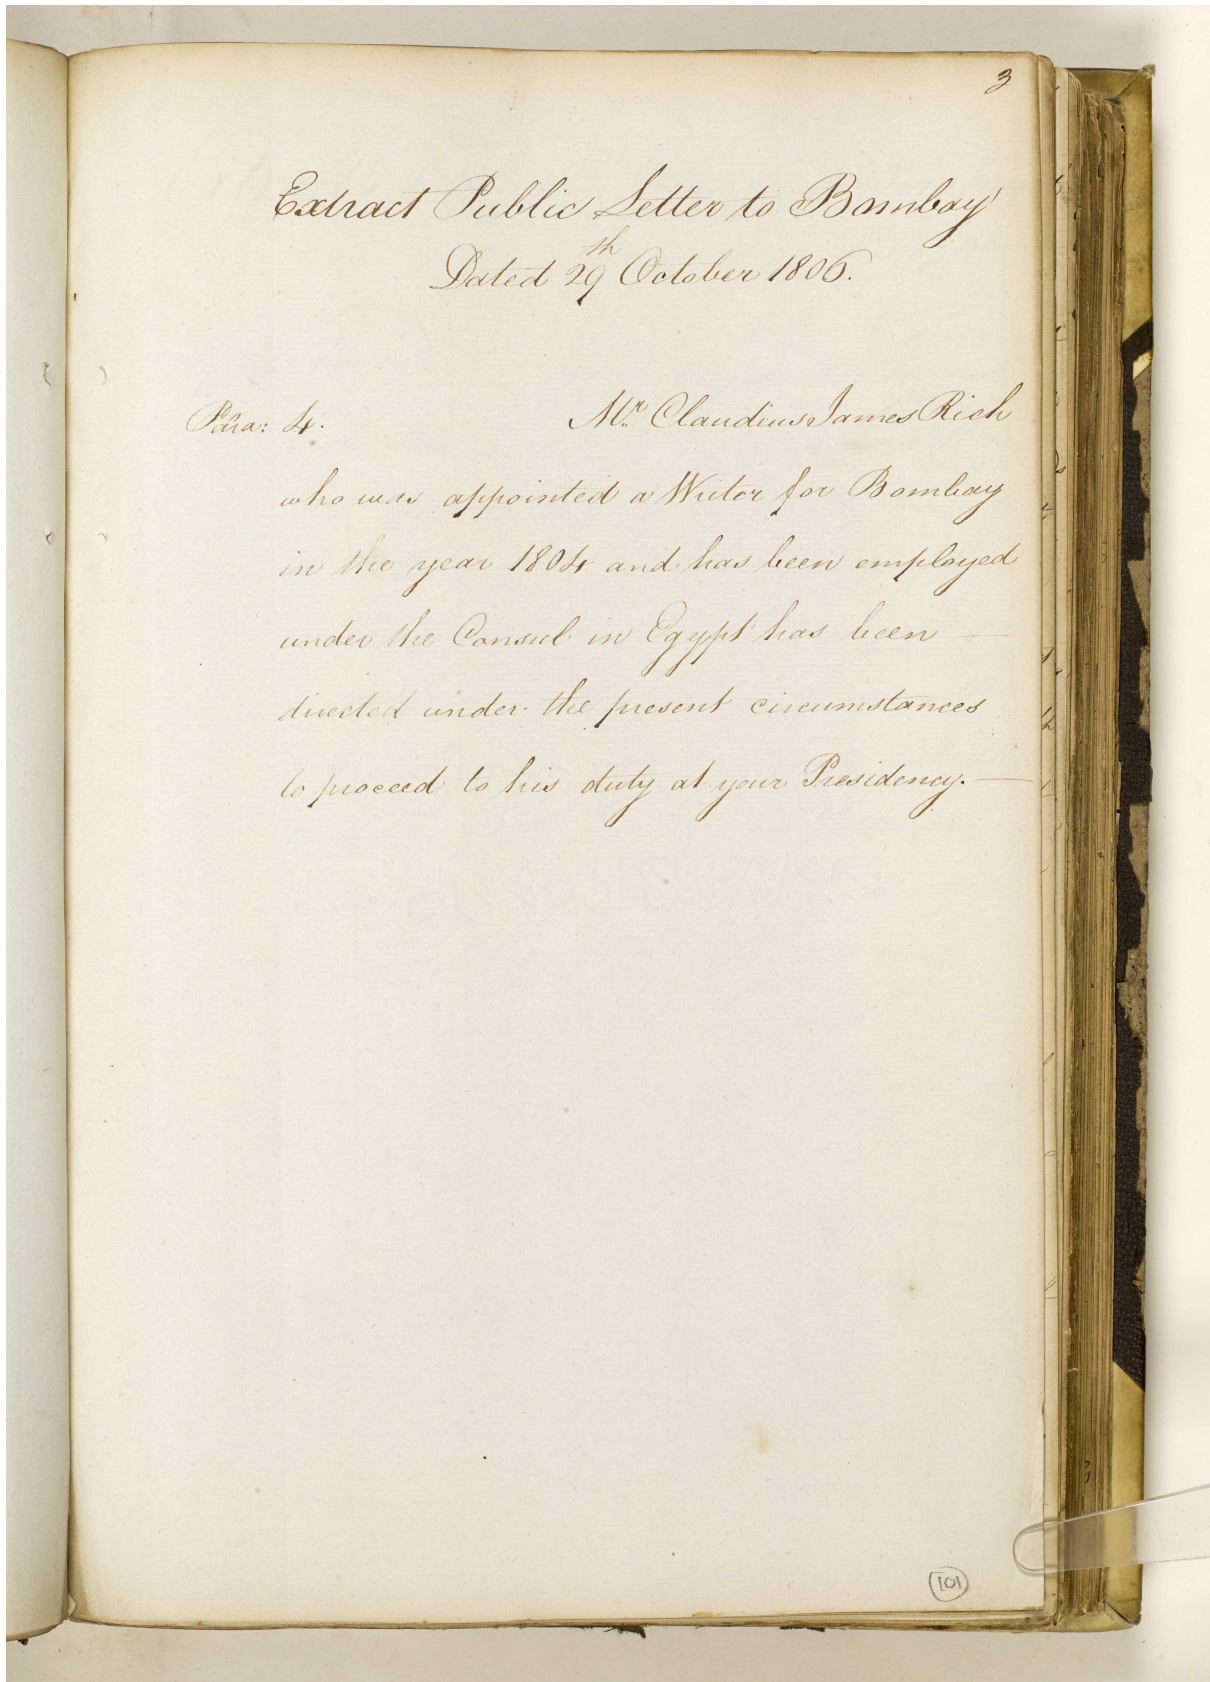 3
Extract Public Letter to Bombay
Dated 29th October 1806.
Para: 4. Mr. Claudius James Rich
who was appointed a Writer for Bombay
in the year 1804 and has been employed
under the Consul in Egypt has been
directed under the present circumstances
to proceed to his duty at your Presidency.
101